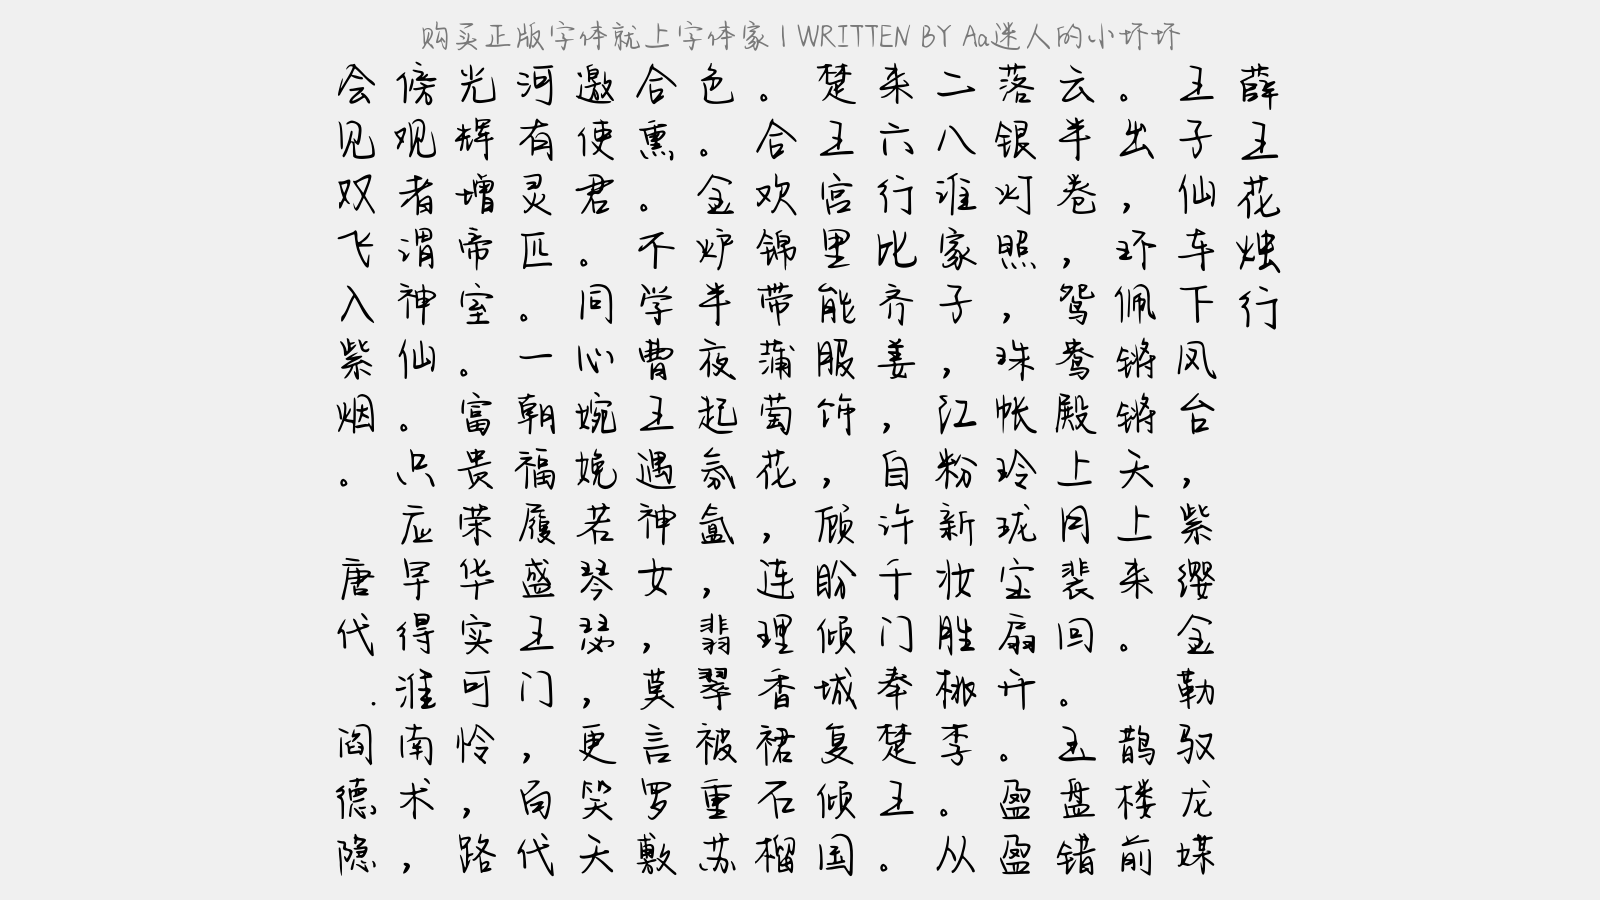 购买正版字体就上字体家 | WRITTEN BY Aa迷人的小坏坏
薛王花烛行
王子仙车下凤台，紫缨金勒驭龙媒
。出，环佩锵锵天上来。 鹊楼前
云半卷，鸳鸯殿上月裴回。玉盘错
落银灯照，珠帐玲珑宝扇开。盈盈
二八谁家子，红粉新妆胜桃李。从
来六行比齐姜，自许千门奉楚王。
楚王宫里能服饰，顾盼倾城复倾国
。合欢锦带蒲萄花，连理香裙石榴
色。金炉半夜起氛氲，翡翠被重苏
合熏。不学曹王遇神女，莫言罗敷
邀使君。同心婉娩若琴瑟，更笑天
河有灵匹。一朝福履盛王门，百代
光辉增帝室。富贵荣华实可怜，路
傍观者谓神仙。只应早得淮南术，
会见双飞入紫烟。 唐代.阎德隐